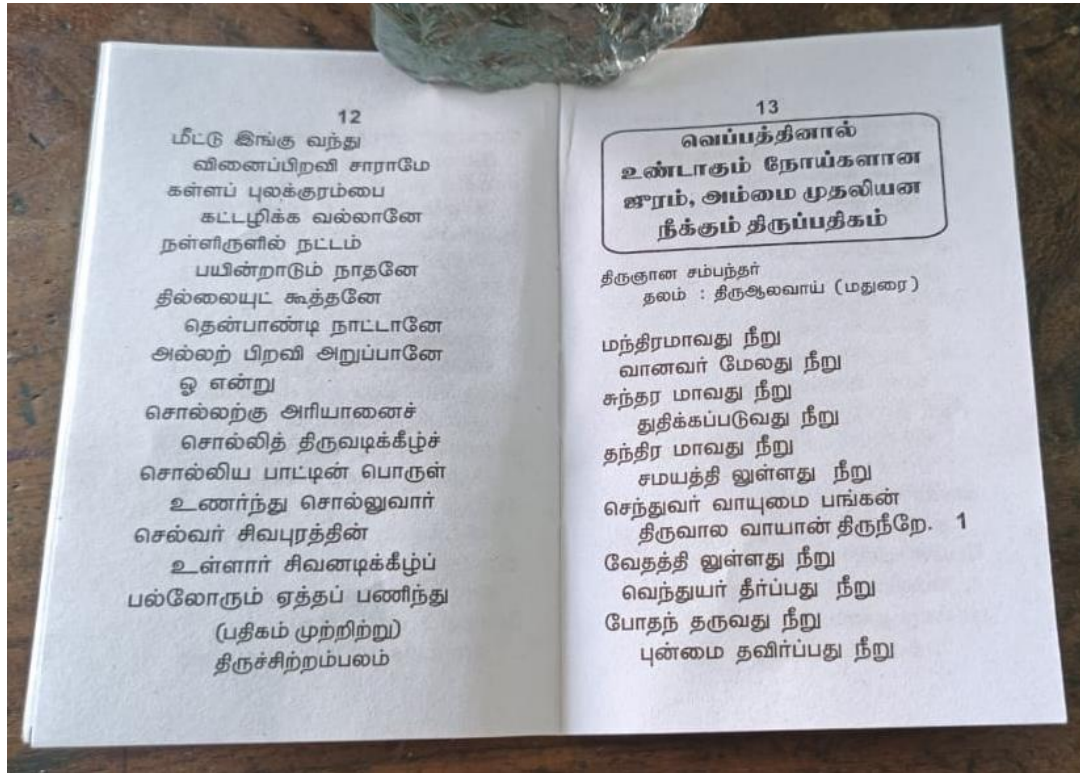 12
மீட்டு இங்கு வந்து
வினைப்பிறவி சாராமே
கள்ளப் புலக்குரம்பை
கட்டழிக்க வல்லானே
நள்ளிருளில் நட்டம்
பயின்றாடும் நாதனே
தில்லையுட் கூத்தனே
தென்பாண்டி நாட்டானே
அல்லற் பிறவி அறுப்பானே
ஓ என்று
சொல்லற்கு அரியானைச்
சொல்லித் திருவடிக்கீழ்ச்
சொல்லிய பாட்டின் பொருள்
உணர்ந்து சொல்லுவார்
செல்வர் சிவபுரத்தின்
உள்ளார் சிவனடிக்கீழ்ப்
பல்லோரும் ஏத்தப் பணிந்து
(பதிகம் முற்றிற்று)
திருச்சிற்றம்பலம்
13
வெப்பத்தினால்
உண்டாகும் நோய்களான
ஜுரம், அம்மை முதலியன
நீக்கும் திருப்பதிகம்
திருஞான சம்பந்தர்
தலம் : திருஆலவாய் (மதுரை)
மந்திரமாவது நீறு
வானவர் மேலது நீறு
சுந்தர மாவது நீறு
துதிக்கப்படுவது நீறு
தந்திர மாவது நீறு
சமயத்தி லுள்ளது நீறு
செந்துவர் வாயுமை பங்கன்
திருவால வாயான் திருநீறே. 1
வேதத்தி லுள்ளது நீறு
வெந்துயர் தீர்ப்பது நீறு
போதந் தருவது நீறு
புன்மை தவிர்ப்பது நீறு